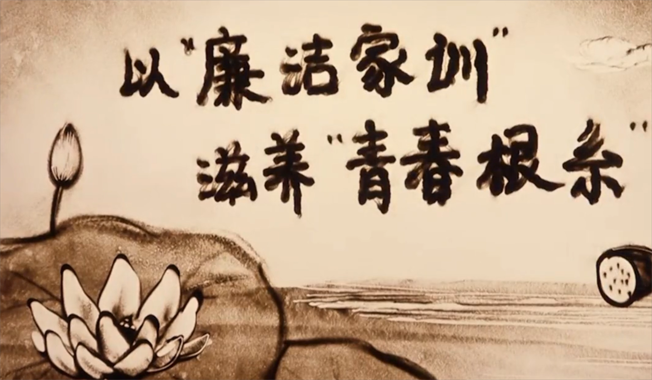 以“廉洁家训”
滋养“青春根系”